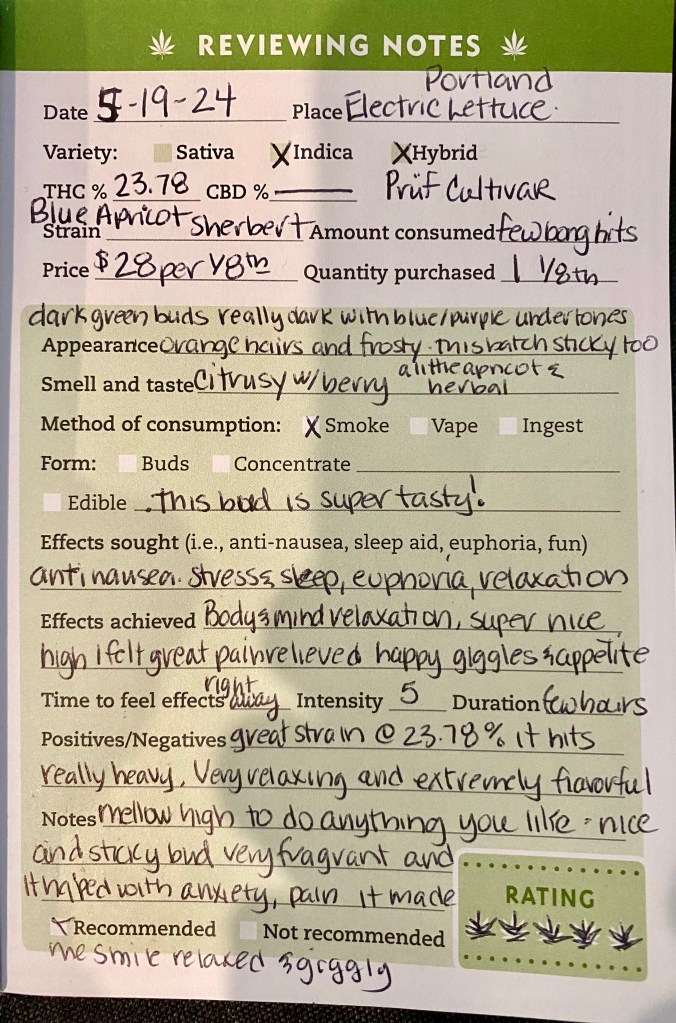 REVIEWING NOTES
Portland
Date 5-19-24 Place Electric Lettuce.
Variety: Sativa X Indica X Hybrid
THC % 23.78 CBD % — Prüf Cultivar
Blue Apricot
Strain Sherbert Amount consumed few bong hits
Price $28 per 1/8th Quantity purchased 1 1/8th
dark green buds really dark with blue/purple undertones
Appearance orange hairs and frosty. this batch sticky too
a little apricot &
Smell and taste Citrusy w/ berry herbal
Method of consumption: X Smoke Vape Ingest
Form: Buds Concentrate
Edible . this bud is super tasty!
Effects sought (i.e., anti-nausea, sleep aid, euphoria, fun)
anti nausea. stress & sleep, euphoria, relaxation
Effects achieved Body & mind relaxation, super nice
high I felt great pain relieved happy giggles & appetite
right
Time to feel effects away Intensity 5 Duration few hours
Positives/Negatives great strain @ 23.78% it hits
really heavy. Very relaxing and extremely flavorful
Notes mellow high to do anything you like - nice
and sticky bud very fragrant and
it helped with anxiety, pain it made
RATING
X Recommended Not recommended
me smile relaxed & giggly